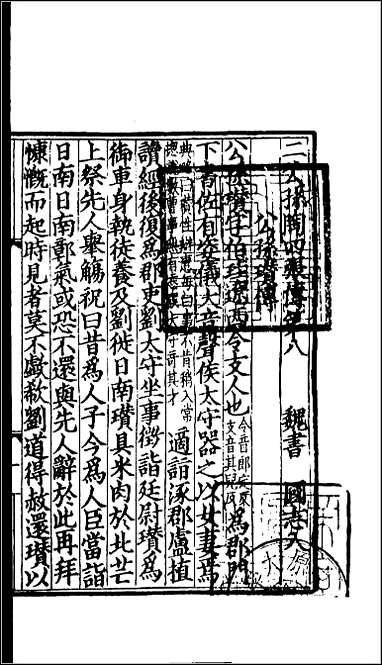 二公孫陶四張傳第八 魏書 國志八
公孫瓚傳
公孫瓚字伯珪遼西令支人也令音郎定反支音其兒反為郡門
下書佐有姿儀大音聲侯太守器之以女妻焉
典略曰瓚性辯慧每白事不肯稍入常
總說數曹事無有忘誤太守奇其才遣詣涿郡盧植
讀經後復為郡吏劉太守坐事徵詣廷尉瓚為
御車身執徒養及劉徙日南瓚具米肉於北芒
上祭先人舉觴祝曰昔為人子今為人臣當詣
日南日南鄣氣或恐不還與先人辭於此再拜
慷慨而起時見者莫不歔欷劉道得赦還瓚以